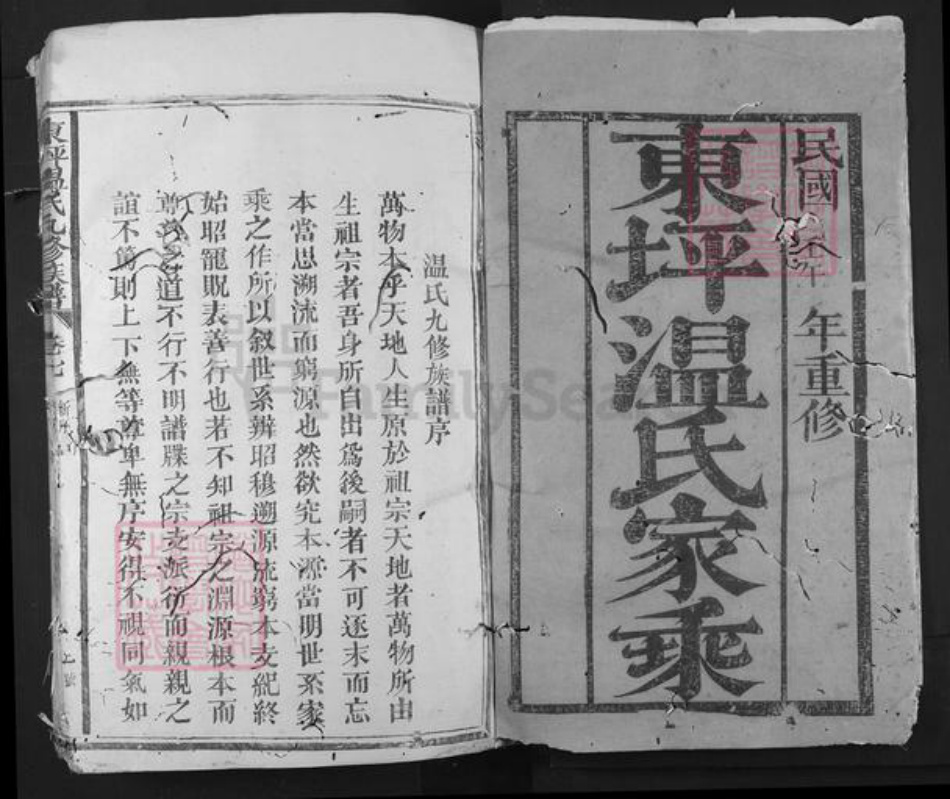 民國壬午年重修
東坪温氏家乘
温氏九修族譜序
萬物本乎天地人生原於祖宗天地者萬物所由
生祖宗者吾身所自出爲後嗣者不可逐末而忘
本當思溯流而窮源也然欲究本源當明世系家
乘之作所以叙世系辨昭穆遡源流窮本支紀終
始昭寵貺表善行也若不知祖宗之淵源根本而
道不行不明譜牒之宗支派衍而親親之
誼不篤則上下無等尊卑無序安得不視同氣如
東坪温氏九修族譜
卷七
FamilySea